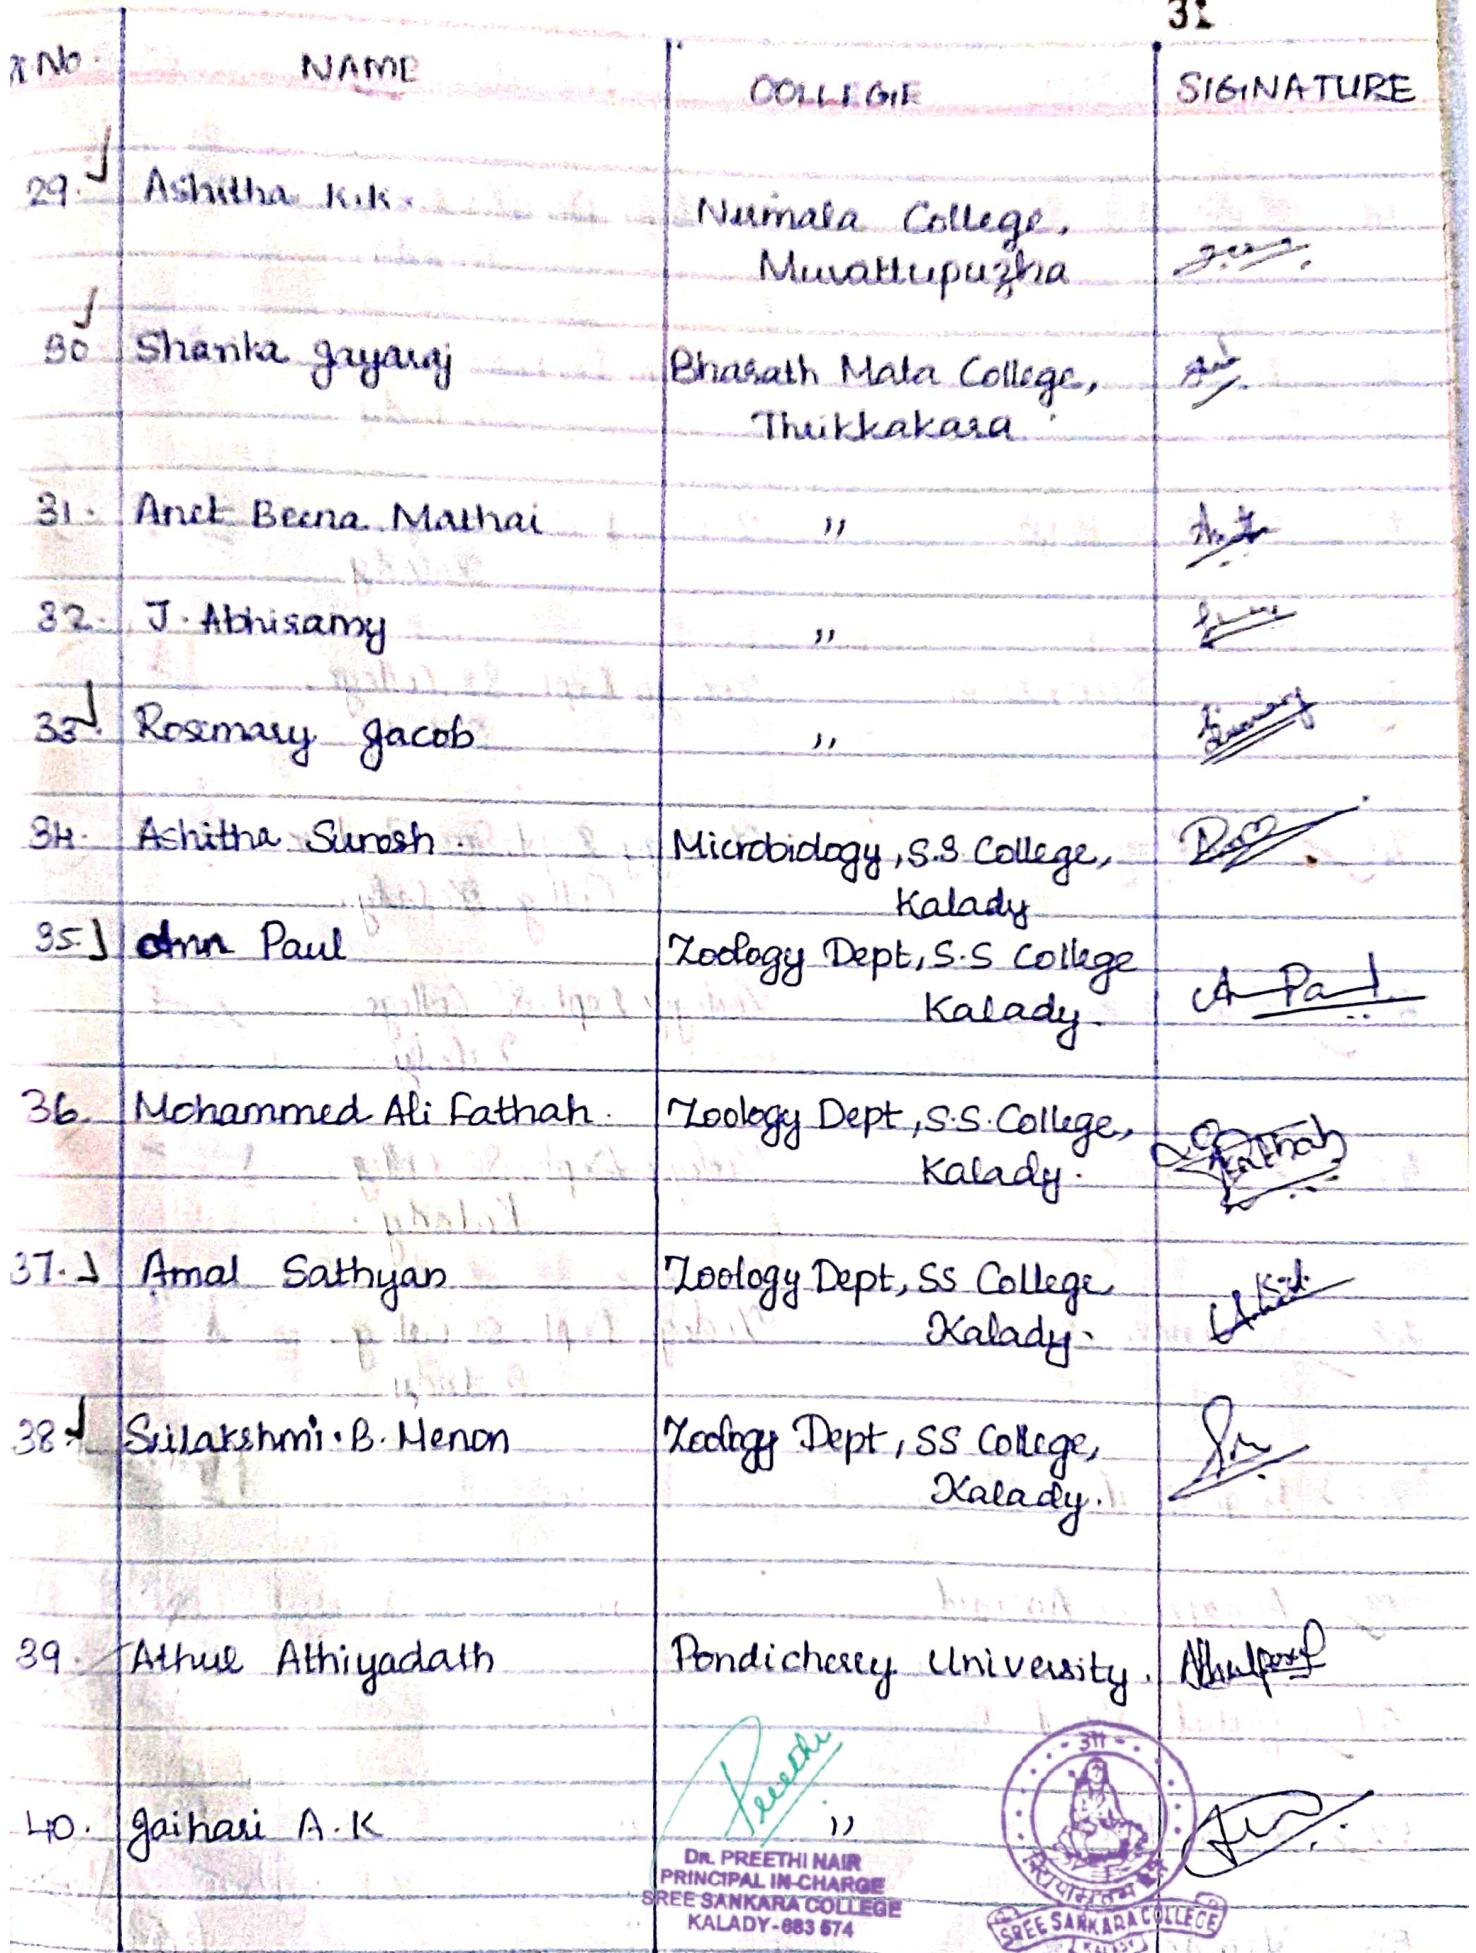 31
NAME COLLEGE SIGNATURE
29. Ashitha K.K. Nirmala College,
Muvattupuzha
30 Sharika Jayaraj Bharath Mata College,
Thrikkakara
31. Anet Beena Mathai "
32. J. Abhisamy "
33. Rosemary Jacob "
34. Ashitha Suresh. Microbiology, S.S College,
Kalady
35. Ann Paul Zoology Dept, S.S College
Kalady.
A Paul
36. Mohammed Ali Fathah. Zoology Dept, S.S. College,
Kalady. Fathah
37. Amal Sathyan Zoology Dept, SS College
Kalady.
38. Srilakshmi. B. Menon Zoology Dept, SS College,
Kalady.
39. Athul Athiyadath Pondicherry University.
Preethi
40. Jaihari A.K "
DR. PREETHI NAIR
PRINCIPAL IN-CHARGE
SREE SANKARA COLLEGE
KALADY-683 574
SREE SANKARA COLLEGE
KALADY